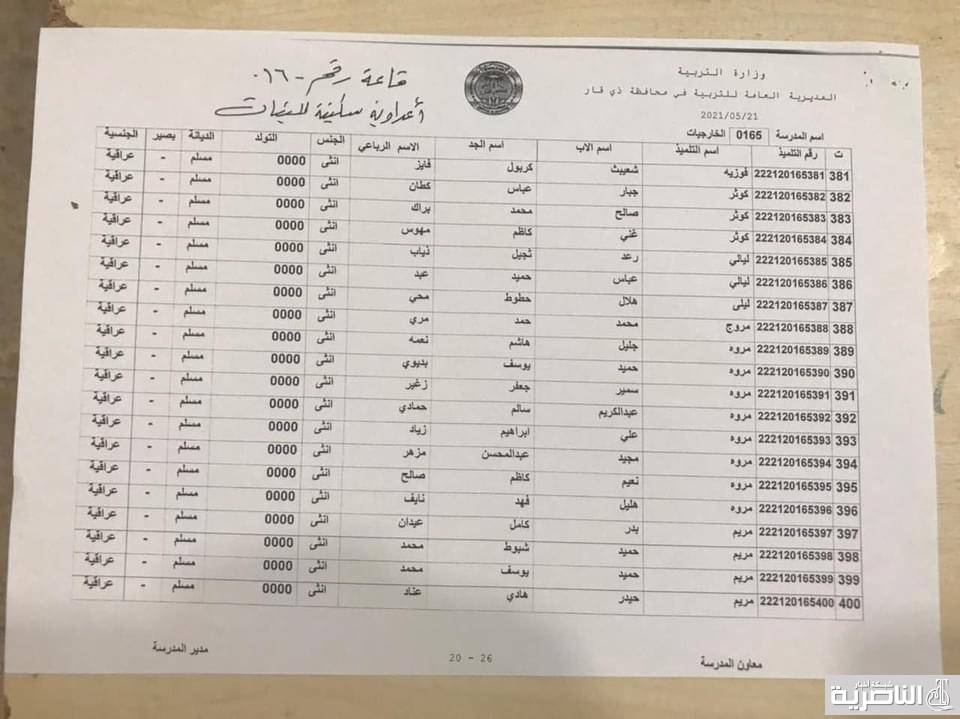 وزارة التربية
المديرية العامة للتربية في محافظة ذي قار
2021/05/21
قاعة رقم - ٠١٦
أعدادية سكينة للبنات
اسم المدرسة 0165 الخارجيات
ت رقم التلميذ اسم التلميذ اسم الاب اسم الجد الاسم الرباعي الجنس التولد الديانة بصير الجنسية
381 222120165381 فوزيه شعيبث كربول فايز انثى 0000 مسلم - عراقية
382 222120165382 كوثر جبار عباس كطان انثى 0000 مسلم - عراقية
383 222120165383 كوثر صالح محمد براك انثى 0000 مسلم - عراقية
384 222120165384 كوثر غني كاظم مهوس انثى 0000 مسلم - عراقية
385 222120165385 ليالي رعد ثجيل ذياب انثى 0000 مسلم - عراقية
386 222120165386 ليالي عباس حميد عبد انثى 0000 مسلم - عراقية
387 222120165387 ليلى هلال حطوط محي انثى 0000 مسلم - عراقية
388 222120165388 مروج محمد حمد مري انثى 0000 مسلم - عراقية
389 222120165389 مروه جليل هاشم نعمه انثى 0000 مسلم - عراقية
390 222120165390 مروه حميد يوسف بديوي انثى 0000 مسلم - عراقية
391 222120165391 مروه سمير جعفر زغير انثى 0000 مسلم - عراقية
392 222120165392 مروه عبدالكريم سالم حمادي انثى 0000 مسلم - عراقية
393 222120165393 مروه علي ابراهيم زياد انثى 0000 مسلم - عراقية
394 222120165394 مروه مجيد عبدالمحسن مزهر انثى 0000 مسلم - عراقية
395 222120165395 مروه نعيم كاظم صالح انثى 0000 مسلم - عراقية
396 222120165396 مروه هليل فهد نايف انثى 0000 مسلم - عراقية
397 222120165397 مريم بدر كامل عيدان انثى 0000 مسلم - عراقية
398 222120165398 مريم حميد شبوط محمد انثى 0000 مسلم - عراقية
399 222120165399 مريم حميد يوسف محمد انثى 0000 مسلم - عراقية
400 222120165400 مريم حيدر هادي عناد انثى 0000 مسلم - عراقية
معاون المدرسة
20 - 26
مدير المدرسة
شبكة أخبار
الناصرية